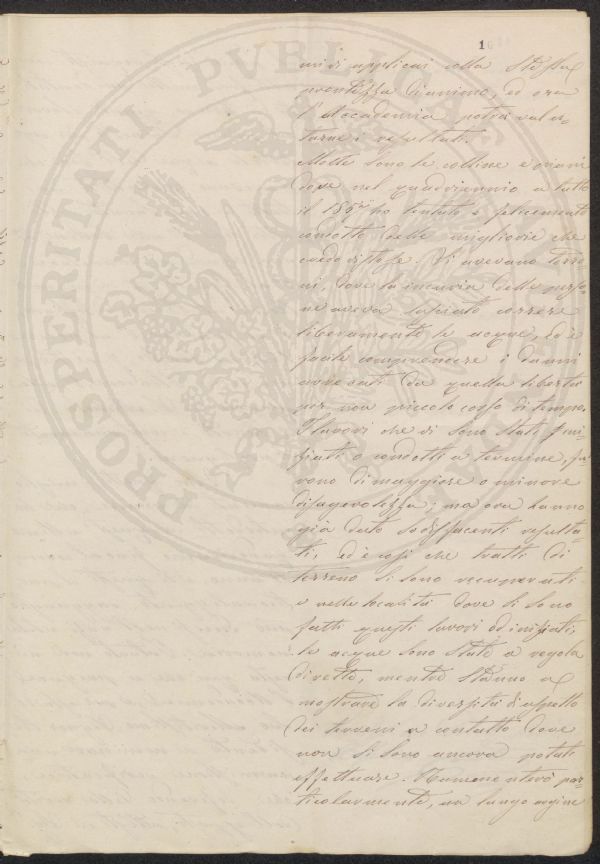 1
mi di applicai colla stessa
prontezza d'animo, ed ora
l'Accademia potrà valu-
tarne i resultati.
Molte sono le colline e
dove nel quadriennio a tutto
il 186 ho tentato e felicemente
condotto delle migliorie che
credo distose. Vi avevano terre
ni, dove la incuria delle perso-
ne aveva lasciato correre
liberamente le acque, ed è
facile comprendere i danni
arrecati da quella libertà
per non piccolo corso di tempo.
I lavori che vi sono stati ini-
ziati e condotti a termine, fu-
rono di maggiore o minore
disagevolezza; ma ora hanno
già dato sodisfacenti resulta-
ti, ed è così che tratti di
terreno si sono recuperati
e nelle località dove si sono
fatti questi lavori ed iniziati,
le acque sono state a regola
dirette, mentre stanno a
mostrare la diversità d'aspetto
dei terreni a contatto dove
non si sono ancora potuti
effettuare. Rammenterò par-
ticolarmente, un lungo argine
PROSPERITATI PVBLICAE